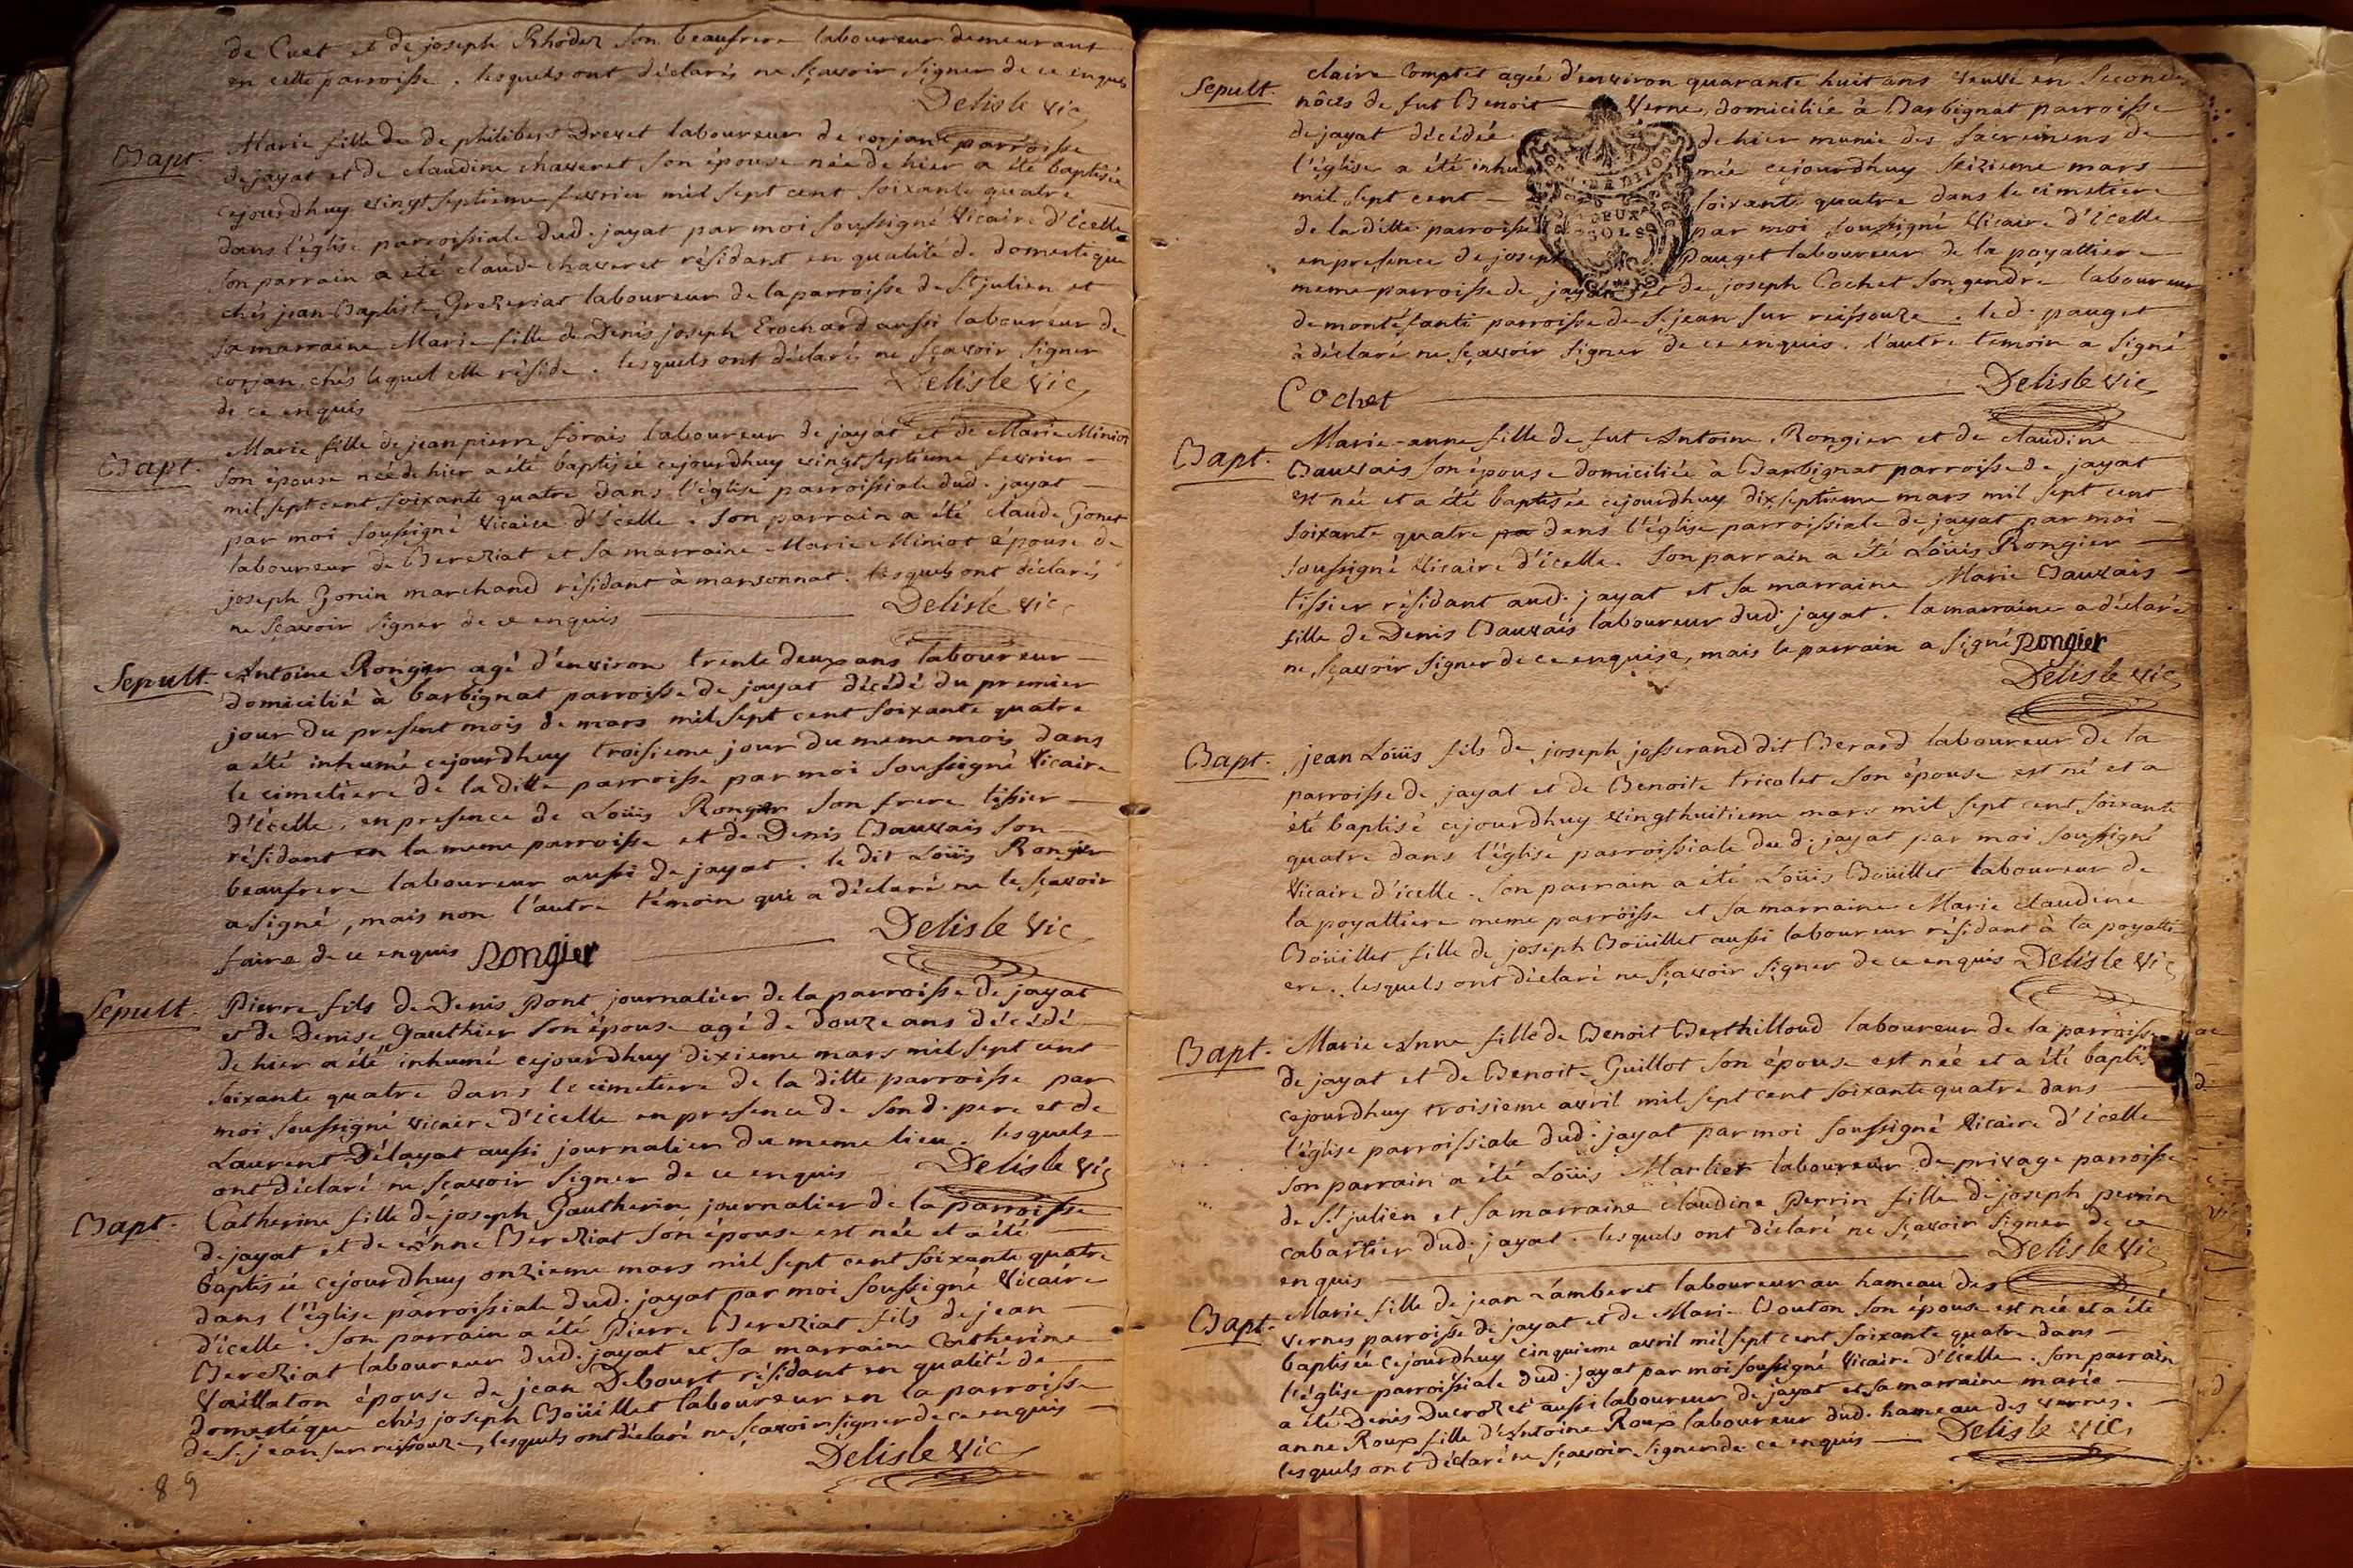 de Cuet et de joseph Rhodet son beaufrere laboureur demeurant
en cette parroisse. lesquels ont déclarés ne sçavoir signer de ce enquis
Delisle vic
Bapt. Marie fille de de philibert Drevet laboureur de corjan parroisse
de jayat et de claudine chaveret son épouse née de hier a été baptisée
cejourdhuy vingt septieme fevrier mil sept cent soixante quatre
dans l'église parroissiale dud. jayat par moi soussigné Vicaire d'icelle
son parrain a été claude chaveret résidant en qualité de domestique
chés jean Baptiste Greveriat laboureur de la parroisse de St julien et
sa marraine Marie fille de Denis joseph Erochard aussi laboureur de
corjan chés lequel elle réside. lesquels ont déclarés ne sçavoir signer
de ce enquis Delisle vic
Bapt. Marie fille de jean pierre forais laboureur de jayat et de Marie Miniot
son épouse née de hier a été baptisée cejourdhuy vingt septieme fevrier
mil sept cent soixante quatre dans l'église parroissiale dud. jayat
par moi soussigné Vicaire d'icelle. son parrain a été claude Gonet
laboureur de Bereziat et sa marraine Marie Miniot épouse de
joseph Gonin marchand résidant à marsonnat. lesquels ont déclarés
ne sçavoir signer de ce enquis Delisle vic
Sepult. Antoine Rongier agé d'environ trente deux ans laboureur
domicilié à barbignat parroisse de jayat décédé du premier
jour du present mois de mars mil sept cent soixante quatre
a été inhumé cejourdhuy troisieme jour du meme mois dans
le cimetiere de la ditte parroisse par moi soussigné Vicaire
d'icelle, en presence de Loüis Rongier son frere tissier
résidant en la meme parroisse et de Denis Bauvais son
beaufrere laboureur aussi de jayat. le dit Loüis Rongier
a signé, mais non l'autre témoin qui a déclaré ne le sçavoir
faire de ce enquis Rongier Delisle Vic
Sepult. Pierre fils de Denis Pont journalier de la parroisse de jayat
et de Denise Gauthier son épouse agé de douze ans décédé
de hier a été inhumé cejourdhuy dixieme mars mil sept cent
soixante quatre dans le cimetiere de la ditte parroisse par
moi soussigné vicaire d'icelle en presence de son d. pere et de
Laurent Délayat aussi journalier du meme lieu. lesquels
ont déclaré ne sçavoir signer de ce enquis Delisle Vic
Bapt. Catherine fille de joseph Gautherin journalier de la parroisse
de jayat et de Anne Bereziat son épouse est née et a été
baptisée cejourdhuy onzieme mars mil sept cent soixante quatre
dans l'église parroissiale dud. jayat par moi soussigné Vicaire
d'icelle. son parrain a été Pierre Bereziat fils de jean
Bereziat laboureur dud. jayat et sa marraine Catherine
Vaillaton épouse de jean Debourt résidant en qualité de
domestique chés joseph Boüillet laboureur en la parroisse
de St jean sur reissouze, lesquels ont déclaré ne sçavoir signer de ce enquis
Delisle Vic
89
Sepult. claire Comptet agée d'environ quarante huit ans veuve en seconde
nôces de fut Benoit Verne, domiciliée à Barbignat parroisse
de jayat décédée de hier munie des sacremens de
l'église a été inhumée cejourdhuy seizieme mars
mil sept cent soixante quatre dans le cimetiere
de la ditte parroisse par moi soussigné Vicaire d'icelle
en presence de joseph Pauget laboureur de la poyattiere
meme parroisse de jayat et de joseph Cochet son gendre laboureur
de montéfanti parroisse de St jean sur reissouze. led. pauget
à déclaré ne sçavoir signer de ce enquis. l'autre témoin a signé
Cochet Delisle vic
DEUX SOLS
Bapt. Marie-anne fille de fut Antoine Rongier et de claudine
Bauvais son épouse domiciliée à Barbignat parroisse de jayat
est née et a été baptisée cejourdhuy dix septieme mars mil sept cent
soixante quatre pa dans l'église parroissiale de jayat par moi
soussigné Vicaire d'icelle. son parrain a été Loüis Rongier
tissier résidant aud. jayat et sa marraine Marie Bauvais
fille de Denis Bauvais laboureur dud. jayat. la marraine a déclaré
ne sçavoir signer de ce enquise, mais le parrain a signé Rongier
Delisle vic
Bapt. jean Loüis fils de joseph josserand dit Berard laboureur de la
parroisse de jayat et de Benoite tricolet son épouse est né et a
été baptisé cejourdhuy vingt huitieme mars mil sept cent soixante
quatre dans l'église parroissiale dud. jayat par moi soussigné
Vicaire d'icelle. son parrain a été Loüis Boüillet laboureur de
la poyattiere meme parroisse et sa marraine Marie claudine
Boüillet fille de joseph Boüillet aussi laboureur résidant à la poyatti
ere. lesquels ont déclaré ne sçavoir signer de ce enquis Delisle Vic
Bapt. Marie Anne fille de Benoit Berthilloud laboureur de la parroisse
de jayat et de Benoite Guillot son épouse est née et a été baptis
cejourdhuy troisieme avril mil sept cent soixante quatre dans
l'église parroissiale dud. jayat par moi soussigné Vicaire d'icelle
son parrain a été Loüis Marlier laboureur de privage parroisse
de St julien et sa marraine claudine Perrin fille de joseph perrin
cabartier dud. jayat. lesquels ont déclaré ne sçavoir signer de ce
enquis Delisle Vic
Bapt. Marie fille de jean Lamberet laboureur au hameau des
vernes parroisse de jayat et de Marie Bouton son épouse est née et a été
baptisée cejourdhuy cinquieme avril mil sept cent soixante quatre dans
l'église parroissiale dud. jayat par moi soussigné Vicaire d'icelle. son parrain
a été Denis Ducrozet aussi laboureur de jayat et sa marraine marie
anne Roux fille d'Antoine Roux laboureur dud. hameau des vernes.
lesquels ont déclaré ne sçavoir signer de ce enquis Delisle vic